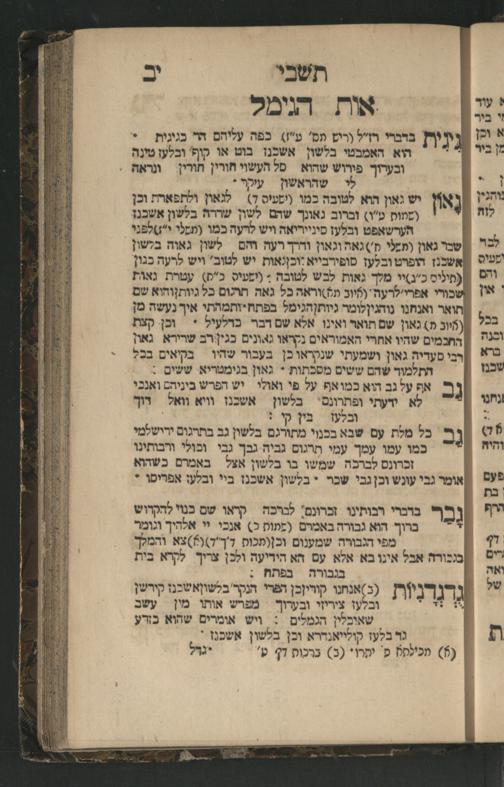 תשבי יב
אות הגימל
גיגית בדברי רז"ל (ריש מס' ע"ז) כפה עליהם הר כגיגית •
הוא האמבטי בלשון אשכנז בוט או קוף ובלעז טינה
ובערוך פירוש שהוא סל העשוי חורין חורין ונראה
לי שהראשון עיקר •
גאון יש גאון הוא לטובה כמו (ישעיה ד) לגאון ולתפארת וכן
(שמות ט"ו) וברוב גאונך שהם לשון שררה בלשון אשכנז
הערשאפט ובלעז סינייריאה ויש לרעה כמו (משלי י"ו) לפני
שבר גאון (משלי ח') גאה וגאון ודרך רעה והם לשון גאוה בלשון
אשכנז הופרט ובלעז סופירבייא וכן גאות יש לטוב' ויש לרעה כגון
(תילים צ"ג) יי מלך גאות לבש לטובה • (ישעיה כ"ח) עטרת גאות
שכורי אפרי' לרעה
תואר ואנחנו נוהגין לומר גיותן הגימל בפתח ותמהתי איך נעשה מן
גאון שם תואר ואינו אלא שם דבר כדלעיל • וכן קצת
החכמים שהיו אחרי האמוראים נקראו גאונים כגון רב שרירא גאון
רבי סעדיה גאון ושמעתי שנקראו כן בעבור שהיו בקיאים בכל
התלמוד שהם ששים מסכתות • גאון בגימטריא ששים :
גב אף על גב הוא כמו אף על פי ואולי יש הפרש ביניהם ואנכי
לא ידעתי ופתרונם בלשון אשכנז וויא וואל דוך
ובלעז בין קי :
גב כל מלת עם שבא בכנוי מתורגם בלשון גב בתרגום ירושלמי
כמו עמו עמך עמי תרגום גביה גבך גבי וכולי ורבותינו
זכרונם לברכה שמשו בו בלשון אצל באמרם כשהוא
אומר גבי עונש וכן גבי שכר • בלשון אשכנז ביי ובלעז אפריסו •
גבר בדברי רבותינו זכרונם לברכה קראו שם כנוי להקדוש
ברוך הוא גבורה באמרם (שמות כ) אנכי יי אלהיך וגומר
מפי הגבורה שמענום וכן
בגבורה אבל אינו בא אלא עם הא הידיעה ולכן צריך לקרא בית
בגבורה בפתח :
גדגדניות (ב) אנחנו קורין כן הפרי הנקר' בלשון אשכנז קירשן
ובלעז ציריזי ובערוך מפרש אותו מין עשב
שאוכלין הגמלים : ויש אומרים שהוא כזרע
גד בלעז קולייאנדרא וכן בלשון אשכנז •
(א) מכילתא פ' יתרו • (ב) ברכות דף
גדל